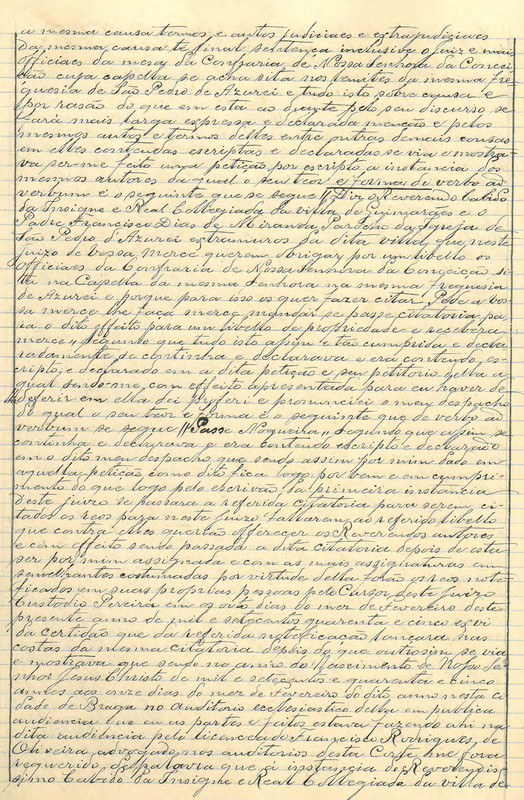 a mesma causa termos e autos judiciaes e extrajudiciaes
da mesma causa te final sentença inclusive o juiz e mais
officiaes da mesa da Confraria de Nossa Senhora da Concei
ção cuja capella se acha sita nos limites da mesma Fre
guesia de São Pedro de Azurei e tudo isto sobre causa e
por rasão do que em esta ao diante pelo seu discurso se
fará mais larga expressa e declarada menção e pelos
mesmos autos e termos delles entre outras demais cousas
em elles conteudas escriptas e declaradas se via e mostra
va ser-me feito uma petição por escripto a instancia dos
mesmos autores da qual o seu teor e forma de verbo ad
verbum é o seguinte que se segue "Diz o Reverendo Cabido
da Insigne e Real Collegiada da villa de Guimarães e o
Padre Francisco Dias de Miranda Parocho da Igreja de
São Pedro d'Azurei extramuros da dita villa, que neste
juizo de vossa mercê querem obrigar por um libello os
officiaes da Confraria de Nossa Senhora da Conceição si
ta na Capella da mesma Senhora na mesma Freguesia
de Azurei e porque para isso os quer fazer citar Pede a vos
sa mercê lhe faça mercê mandar se passe citatoria pa
ra o dito effeito para um libello de propriedade e receberá
mercê" segundo que tudo isto assim e tão cumprida e decla
radamente se continha e declarava e era conteudo, es
cripto e declarado em a dita petição e seu petitorio della a
qual sendo-me com effeito apresentada para eu haver de
deferir em ella dei proferi e pronunciei o meu despacho
do qual o seu teor e forma é o seguinte que de verbo ad
verbum se segue "Passe Nogueira" segundo que assim se
continha e declarava e era conteudo escripto e declarado
em o dito meu despacho que sendo assim por mim dado em
aquella petição como dito fica logo por bem e em cumpri-
mento do que logo pelo escrivão da primeira instancia
deste juizo se passara a referida citatoria para serem ci
tados os reos para neste juizo fallarem ao referido libello
que contra elles querião offerecer os Reverendos autores
e com effeito sendo passada a dita citatoria depois de esta
ser por mim assignada e com as mais assignaturas em
semelhantes costumadas por virtude della forão os reos noti
ficados em suas proprias pessoas pelo Cursor deste juizo
Custodio Pereira em nove dias do mez de Fevereiro deste
presente anno de mil e setecentos quarenta e cinco ex vi
da certidão que da referida notificação lançara nas
costas da mesma citatoria depois do que outrosim se via
e mostrava que sendo no anno do Nascimento de Nosso Se
nhor Jesus Christo de mil e setecentos e quarenta e cinco
annos aos onze dias do mez de Fevereiro do dito anno nesta ci
dade de Braga no auditorio ecclesiastico della em publica
audiencia que eu as partes e feitos estava fazendo ahi na
dita audiencia pelo licenceado Francisco Rodrigues de
Oliveira advogado nos auditorios desta Corte me fora
requerido, que a instancia do Reverendis
simo Cabido da Insigne e Real Collegiada da villa de